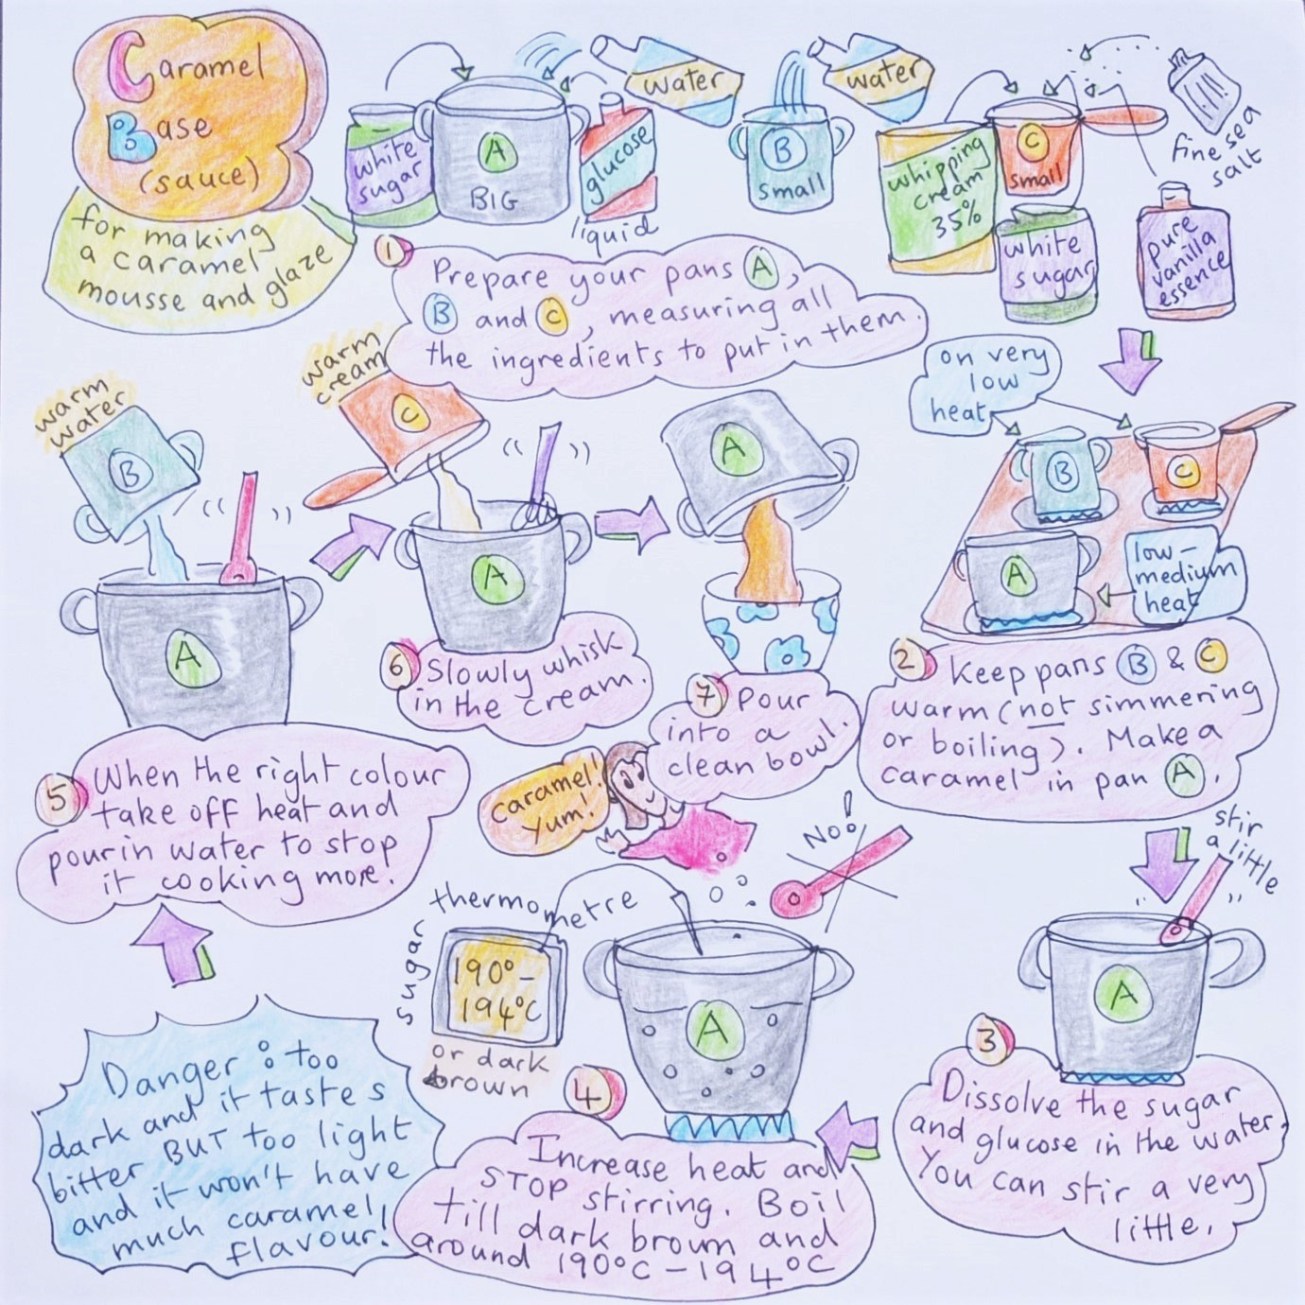 Caramel
Base
(sauce)
for making
a caramel
mousse and glaze
white
sugar
A
BIG
glucose
liquid
water
B
small
water
whipping
cream
35%
C
small
white
sugar
fine sea
salt
pure
vanilla
essence
1
Prepare your pans A,
B and C, measuring all
the ingredients to put in them.
on very
low
heat
B
C
A
low-
medium
heat
2 Keep pans B & C
warm (not simmering
or boiling). Make a
caramel in pan A.
stir
a little
A
3
Dissolve the sugar
and glucose in the water.
You can stir a very
little.
No!
sugar
thermometre
190°-
194°C
or dark
brown
A
4
Increase heat and
STOP stirring. Boil
till dark brown and
around 190°C-194°C
Danger: too
dark and it tastes
bitter BUT too light
and it won't have
much caramel
flavour!
warm
water
B
A
5 When the right colour
take off heat and
pour in water to stop
it cooking more!
warm
cream
C
A
6 Slowly whisk
in the cream.
A
7 Pour
into a
clean bowl.
caramel!
Yum!